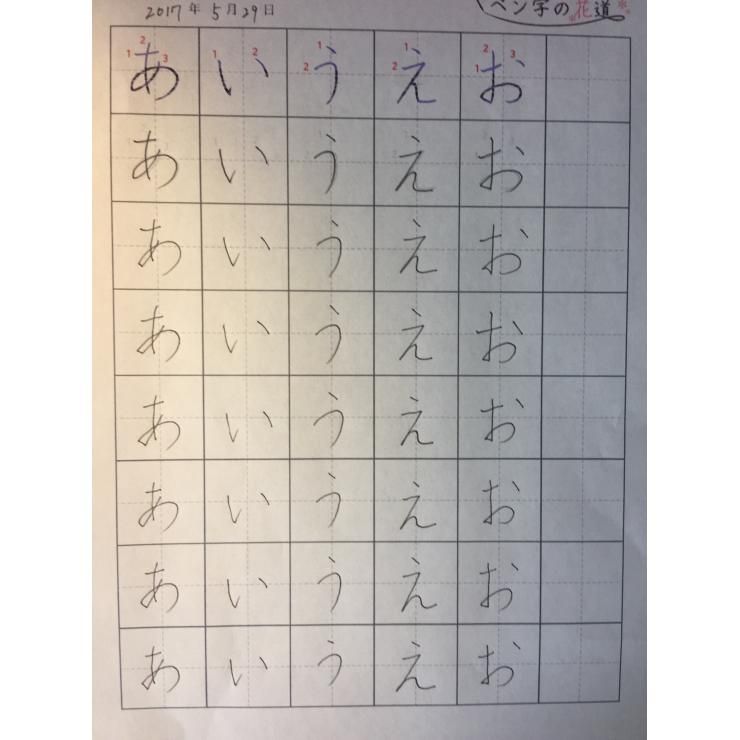 2017年 5月29日
ペン字の花道
あ い う え お
あ い う え お
あ い う え お
あ い う え お
あ い う え お
あ い う え お
あ い う え お
あ い う え お